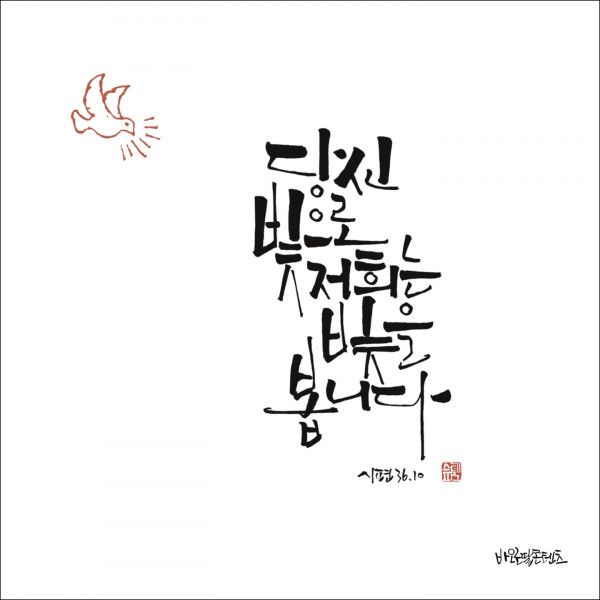 당신
빛으로
저희는
빛을
봅니다
시편 36.10
바오로딸콘텐츠